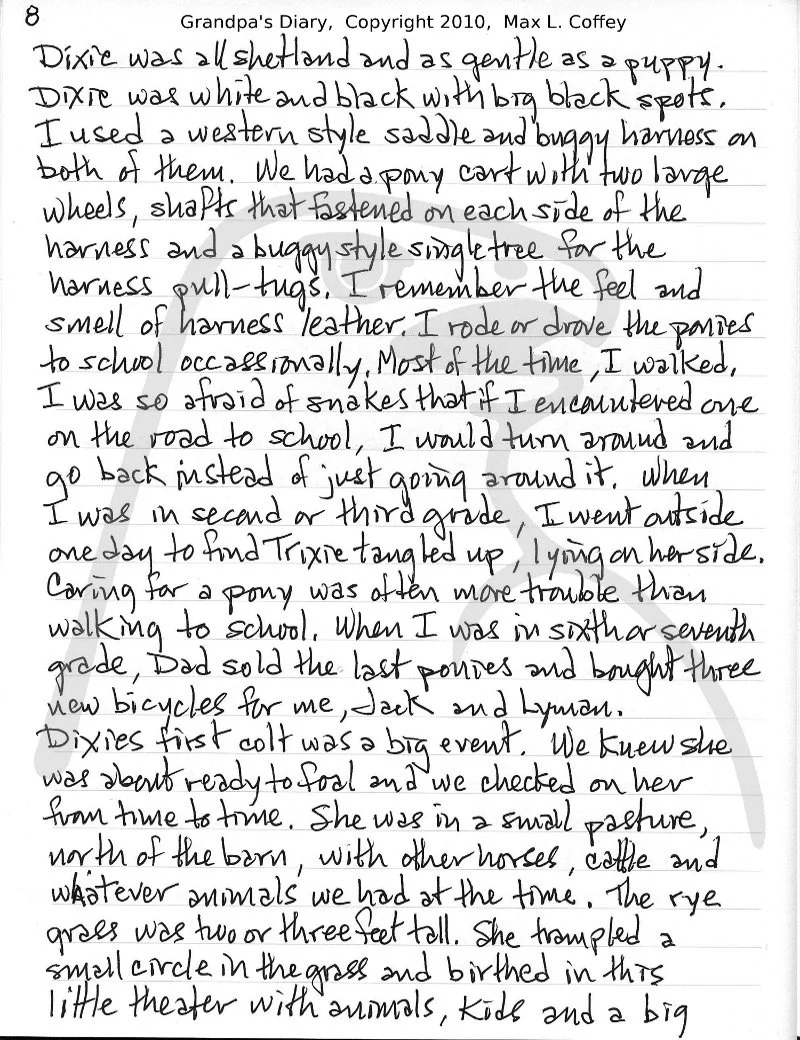 8
Grandpa's Diary, Copyright 2010, Max L. Coffey
Dixie was all shetland and as gentle as a puppy.
Dixie was white and black with big black spots.
I used a western style saddle and buggy harness on
both of them. We had a pony cart with two large
wheels, shafts that fastened on each side of the
harness and a buggy style singletree for the
harness pull-tugs. I remember the feel and
smell of harness leather. I rode or drove the ponies
to school occassionally. Most of the time, I walked.
I was so afraid of snakes that if I encountered one
on the road to school, I would turn around and
go back instead of just going around it. When
I was in second or third grade, I went outside
one day to find Trixie tangled up, lying on her side.
Caring for a pony was often more trouble than
walking to school. When I was in sixth or seventh
grade, Dad sold the last ponies and bought three
new bicycles for me, Jack and Lyman.
Dixies first colt was a big event. We knew she
was about ready to foal and we checked on her
from time to time. She was in a small pasture,
north of the barn, with other horses, cattle and
whatever animals we had at the time. The rye
grass was two or three feet tall. She trampled a
small circle in the grass and birthed in this
little theater with animals, kids and a big